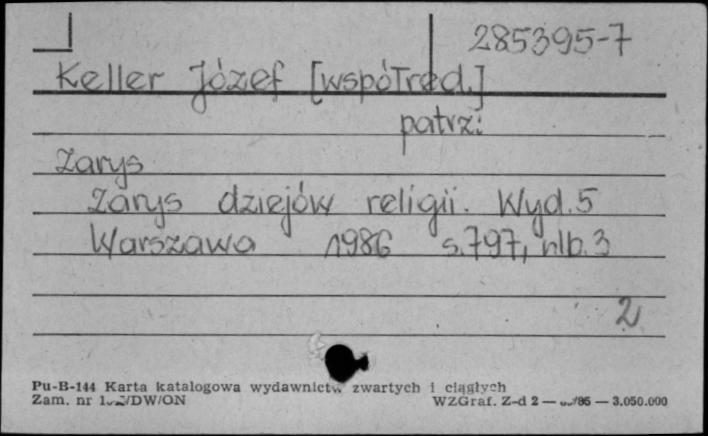 285395-7
Keller Józef [współred.]
patrz:
Zarys
Zarys dziejów religii. Wyd. 5
Warszawa 1986 s. 797, nlb. 3
2
Pu-B-144 Karta katalogowa wydawnictw zwartych i ciągłych
Zam. nr /DW/ON WZGraf. Z-d 2 — /85 — 3.050.000